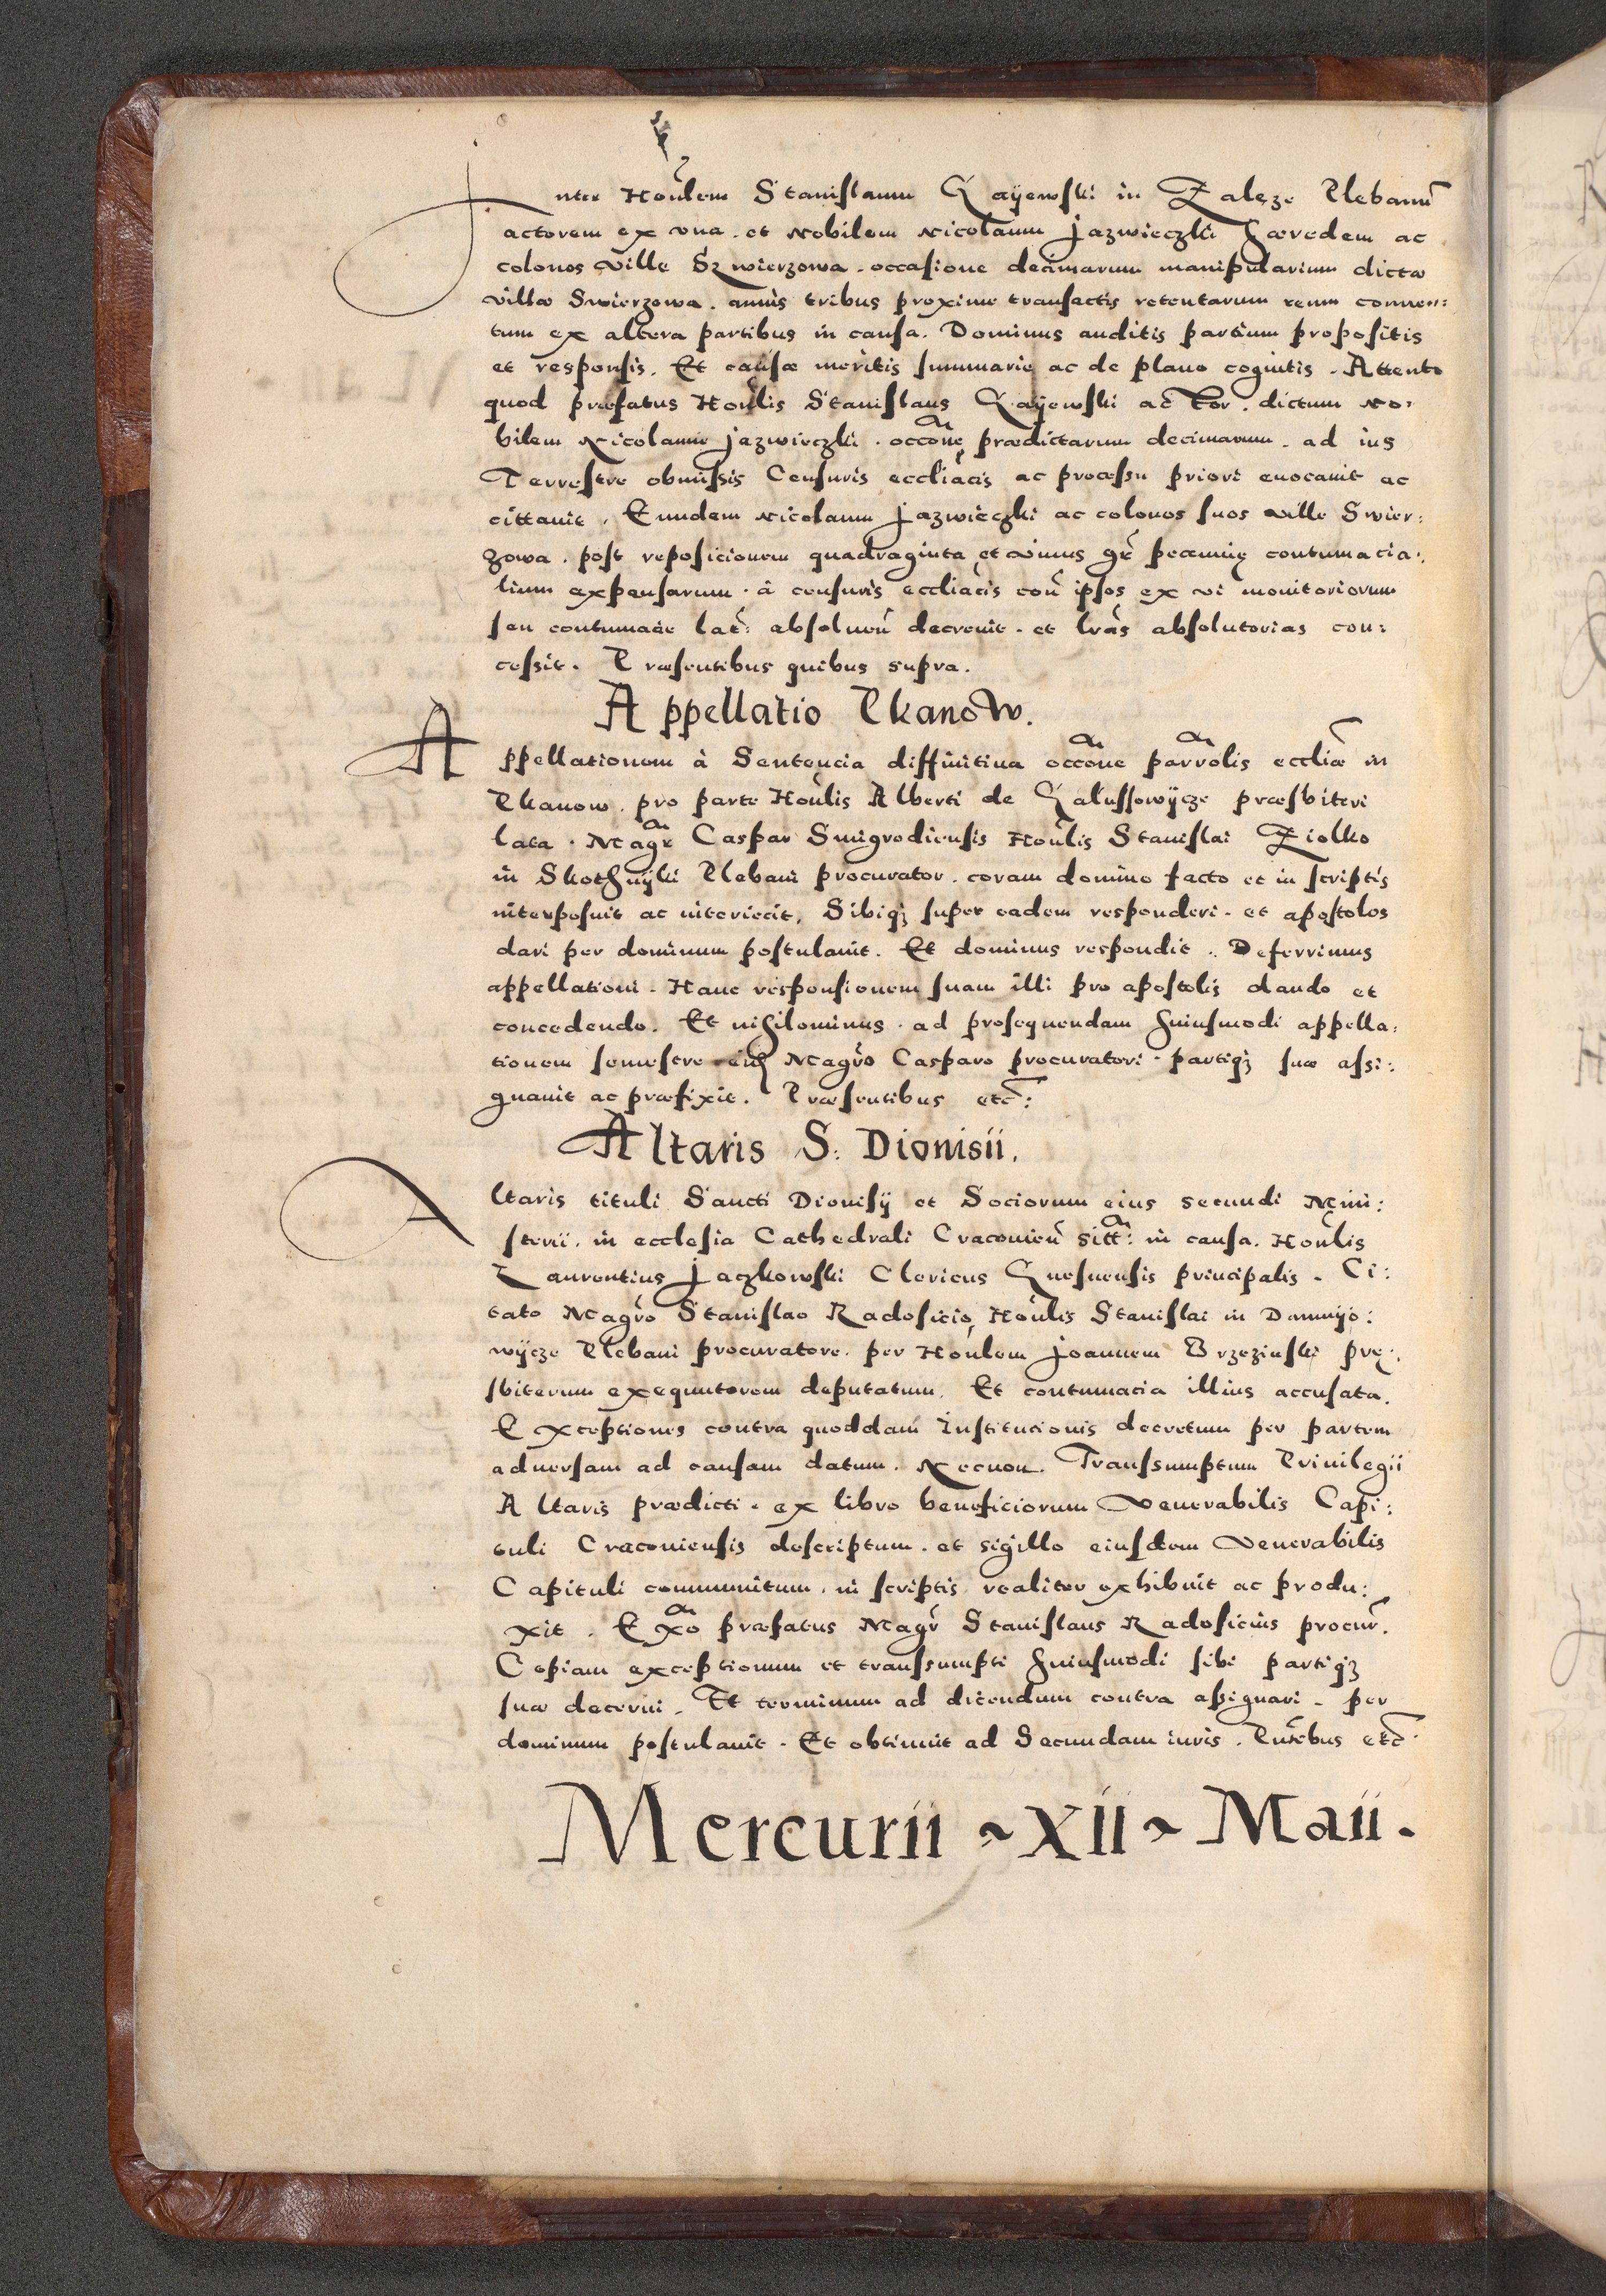 Inter Hon̄lem Stanislaum Gayewski in Zalęze Plebanu͂
actorem ex vna. et Nobilem Nicolaum Jazwieczki hæredem ac
colonos ville Szwierzowa. occasione decimarum manipularium dictæ
villæ Swierzowa. annis tribus proxime transactis retentarum reum conuen:
tum ex altera partibus in causa. Dominus auditis partium propositis
et responsis. Et causæ meritis summarie ac de plano cognitis. Attento
quod præfatus Hon̄lis Stanislaus Gayewski dictum No:
bilem Nicolaum Jazwieczki. occōne prædictarum decimarum. ad ius
Terrestre obmissis Censuris eccliācis ac processu priori euocauit ac
cittauit. Eundem Nicolaum Jazwieczki ac colonos suos ville Swier:
zowa. post reposicionem quadraginta et vnius gr̄ pecunię contumacia:
lium expensarum. à censuris eccliācis con̄ ipsos ex vi monitoriorum
seu contumaciæ lat̄: absoluen̄ decreuit. et lrās absolutorias con:
cessit. Præsentibus quibus supra.
Appellatio Pkanow.
Appellationem à Sentencia diffinitiua occōne parrōlis eccliæ in
Pkanow. pro parte Hon̄lis Alberti de Galussowycze præsbiteri
lata. Magr̄ Caspar Smigrodiensis Hon̄lis Stanislai Ziolko
in Skothnyki Plebani procurator. coram domino facto et in scriptis
interposuit ac interiecit, Sibiqꝫ super eadem responderi. et apostolos
dari per dominum postulauit. Et dominus respondit.. Deferrimus
appellationi. Hanc responsionem suam illi pro apostolis dando et
concedendo. Et nihilominus. ad prosequendam huiusmodi appella:
tionem semestre Magr̄o Casparo procuratori. partiqꝫ suæ assi:
gnauit ac præfixit. Præsentibus etc̄:
Altaris S. Dionisii.
Altaris tituli Sancti Dionisÿ et Sociorum eius secundi Mini:
sterii. in ecclesia Cathedrali Cracouien̄ sitt̄: in causa. Hon̄lis
Laurentius Jaczkowski Clericus Gnesnensis principalis. Ci:
tato Magr̄o Stanislao Radosicio, Hon̄lis Stanislai in Dmnyo:
wycze Plebani procuratore. per Hon̄lem Joannem Brzezinski prę:
sbiterum exequutorem deputatum. Et contumacia illius accusata.
Exceptiones contra quoddam Institucionis decretum per partem
aduersam ad causam datum. Necnon. Transsumptum Priuilegii
Altaris prædicti. ex libro beneficiorum Venerabilis Capi:
tuli Cracouiensis descriptum. et sigillo eiusdem Venerabilis
Capituli communitum. in scriptis realiter exhibuit ac produ:
xit. Ex̄o præfatus Magr̄ Stanislaus Radosicius procur̄.
Copiam exceptionum et transsumpti huiusmodi sibi partiqꝫ
suæ decerni. Et terminum ad dicendum contra assignari. per
dominum postulauit. Et obtinuit ad Secundam iuris. Pn̄tibus etc̄.
Mercurii ~ XII ~ Maii.